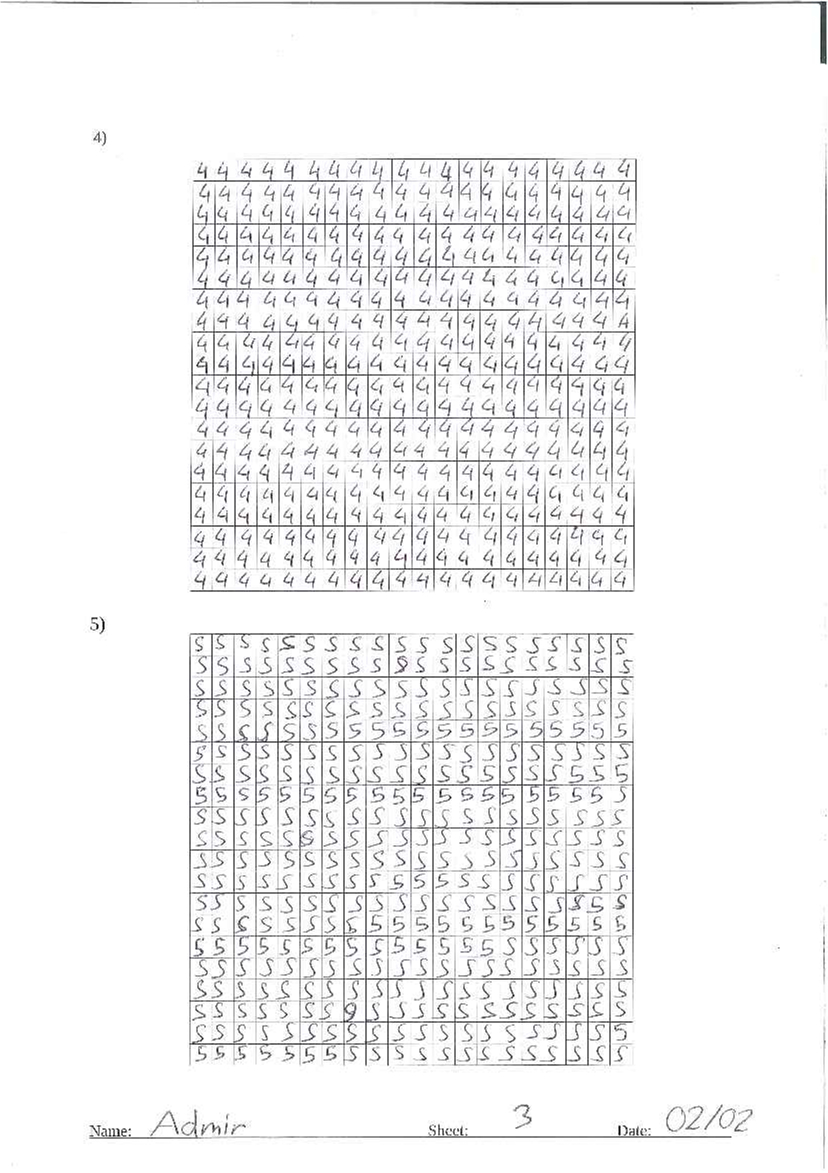 4)
4 4 4 4 4 4 4 4 4 4 4 4 4 4 4 4 4 4 4 4
4 4 4 4 4 4 4 4 4 4 4 4 4 4 4 4 4 4 4 4
4 4 4 4 4 4 4 4 4 4 4 4 4 4 4 4 4 4 4 4
4 4 4 4 4 4 4 4 4 4 4 4 4 4 4 4 4 4 4 4
4 4 4 4 4 4 4 4 4 4 4 4 4 4 4 4 4 4 4 4
4 4 4 4 4 4 4 4 4 4 4 4 4 4 4 4 4 4 4 4
4 4 4 4 4 4 4 4 4 4 4 4 4 4 4 4 4 4 4 4
4 4 4 4 4 4 4 4 4 4 4 4 4 4 4 4 4 4 4 4
4 4 4 4 4 4 4 4 4 4 4 4 4 4 4 4 4 4 4 4
4 4 4 4 4 4 4 4 4 4 4 4 4 4 4 4 4 4 4 4
4 4 4 4 4 4 4 4 4 4 4 4 4 4 4 4 4 4 4 4
4 4 4 4 4 4 4 4 4 4 4 4 4 4 4 4 4 4 4 4
4 4 4 4 4 4 4 4 4 4 4 4 4 4 4 4 4 4 4 4
4 4 4 4 4 4 4 4 4 4 4 4 4 4 4 4 4 4 4 4
4 4 4 4 4 4 4 4 4 4 4 4 4 4 4 4 4 4 4 4
4 4 4 4 4 4 4 4 4 4 4 4 4 4 4 4 4 4 4 4
4 4 4 4 4 4 4 4 4 4 4 4 4 4 4 4 4 4 4 4
4 4 4 4 4 4 4 4 4 4 4 4 4 4 4 4 4 4 4 4
4 4 4 4 4 4 4 4 4 4 4 4 4 4 4 4 4 4 4 4
4 4 4 4 4 4 4 4 4 4 4 4 4 4 4 4 4 4 4 4
5)
5 5 5 5 5 5 5 5 5 5 5 5 5 5 5 5 5 5 5 5
5 5 5 5 5 5 5 5 5 5 5 5 5 5 5 5 5 5 5 5
5 5 5 5 5 5 5 5 5 5 5 5 5 5 5 5 5 5 5 5
5 5 5 5 5 5 5 5 5 5 5 5 5 5 5 5 5 5 5 5
5 5 5 5 5 5 5 5 5 5 5 5 5 5 5 5 5 5 5 5
5 5 5 5 5 5 5 5 5 5 5 5 5 5 5 5 5 5 5 5
5 5 5 5 5 5 5 5 5 5 5 5 5 5 5 5 5 5 5 5
5 5 5 5 5 5 5 5 5 5 5 5 5 5 5 5 5 5 5 5
5 5 5 5 5 5 5 5 5 5 5 5 5 5 5 5 5 5 5 5
5 5 5 5 5 5 5 5 5 5 5 5 5 5 5 5 5 5 5 5
5 5 5 5 5 5 5 5 5 5 5 5 5 5 5 5 5 5 5 5
5 5 5 5 5 5 5 5 5 5 5 5 5 5 5 5 5 5 5 5
5 5 5 5 5 5 5 5 5 5 5 5 5 5 5 5 5 5 5 5
5 5 5 5 5 5 5 5 5 5 5 5 5 5 5 5 5 5 5 5
5 5 5 5 5 5 5 5 5 5 5 5 5 5 5 5 5 5 5 5
5 5 5 5 5 5 5 5 5 5 5 5 5 5 5 5 5 5 5 5
5 5 5 5 5 5 5 5 5 5 5 5 5 5 5 5 5 5 5 5
5 5 5 5 5 5 5 9 5 5 5 5 5 5 5 5 5 5 5 5
5 5 5 5 5 5 5 5 5 5 5 5 5 5 5 5 5 5 5 5
5 5 5 5 5 5 5 5 5 5 5 5 5 5 5 5 5 5 5 5
Name: Admir Sheet: 3 Date: 02/02